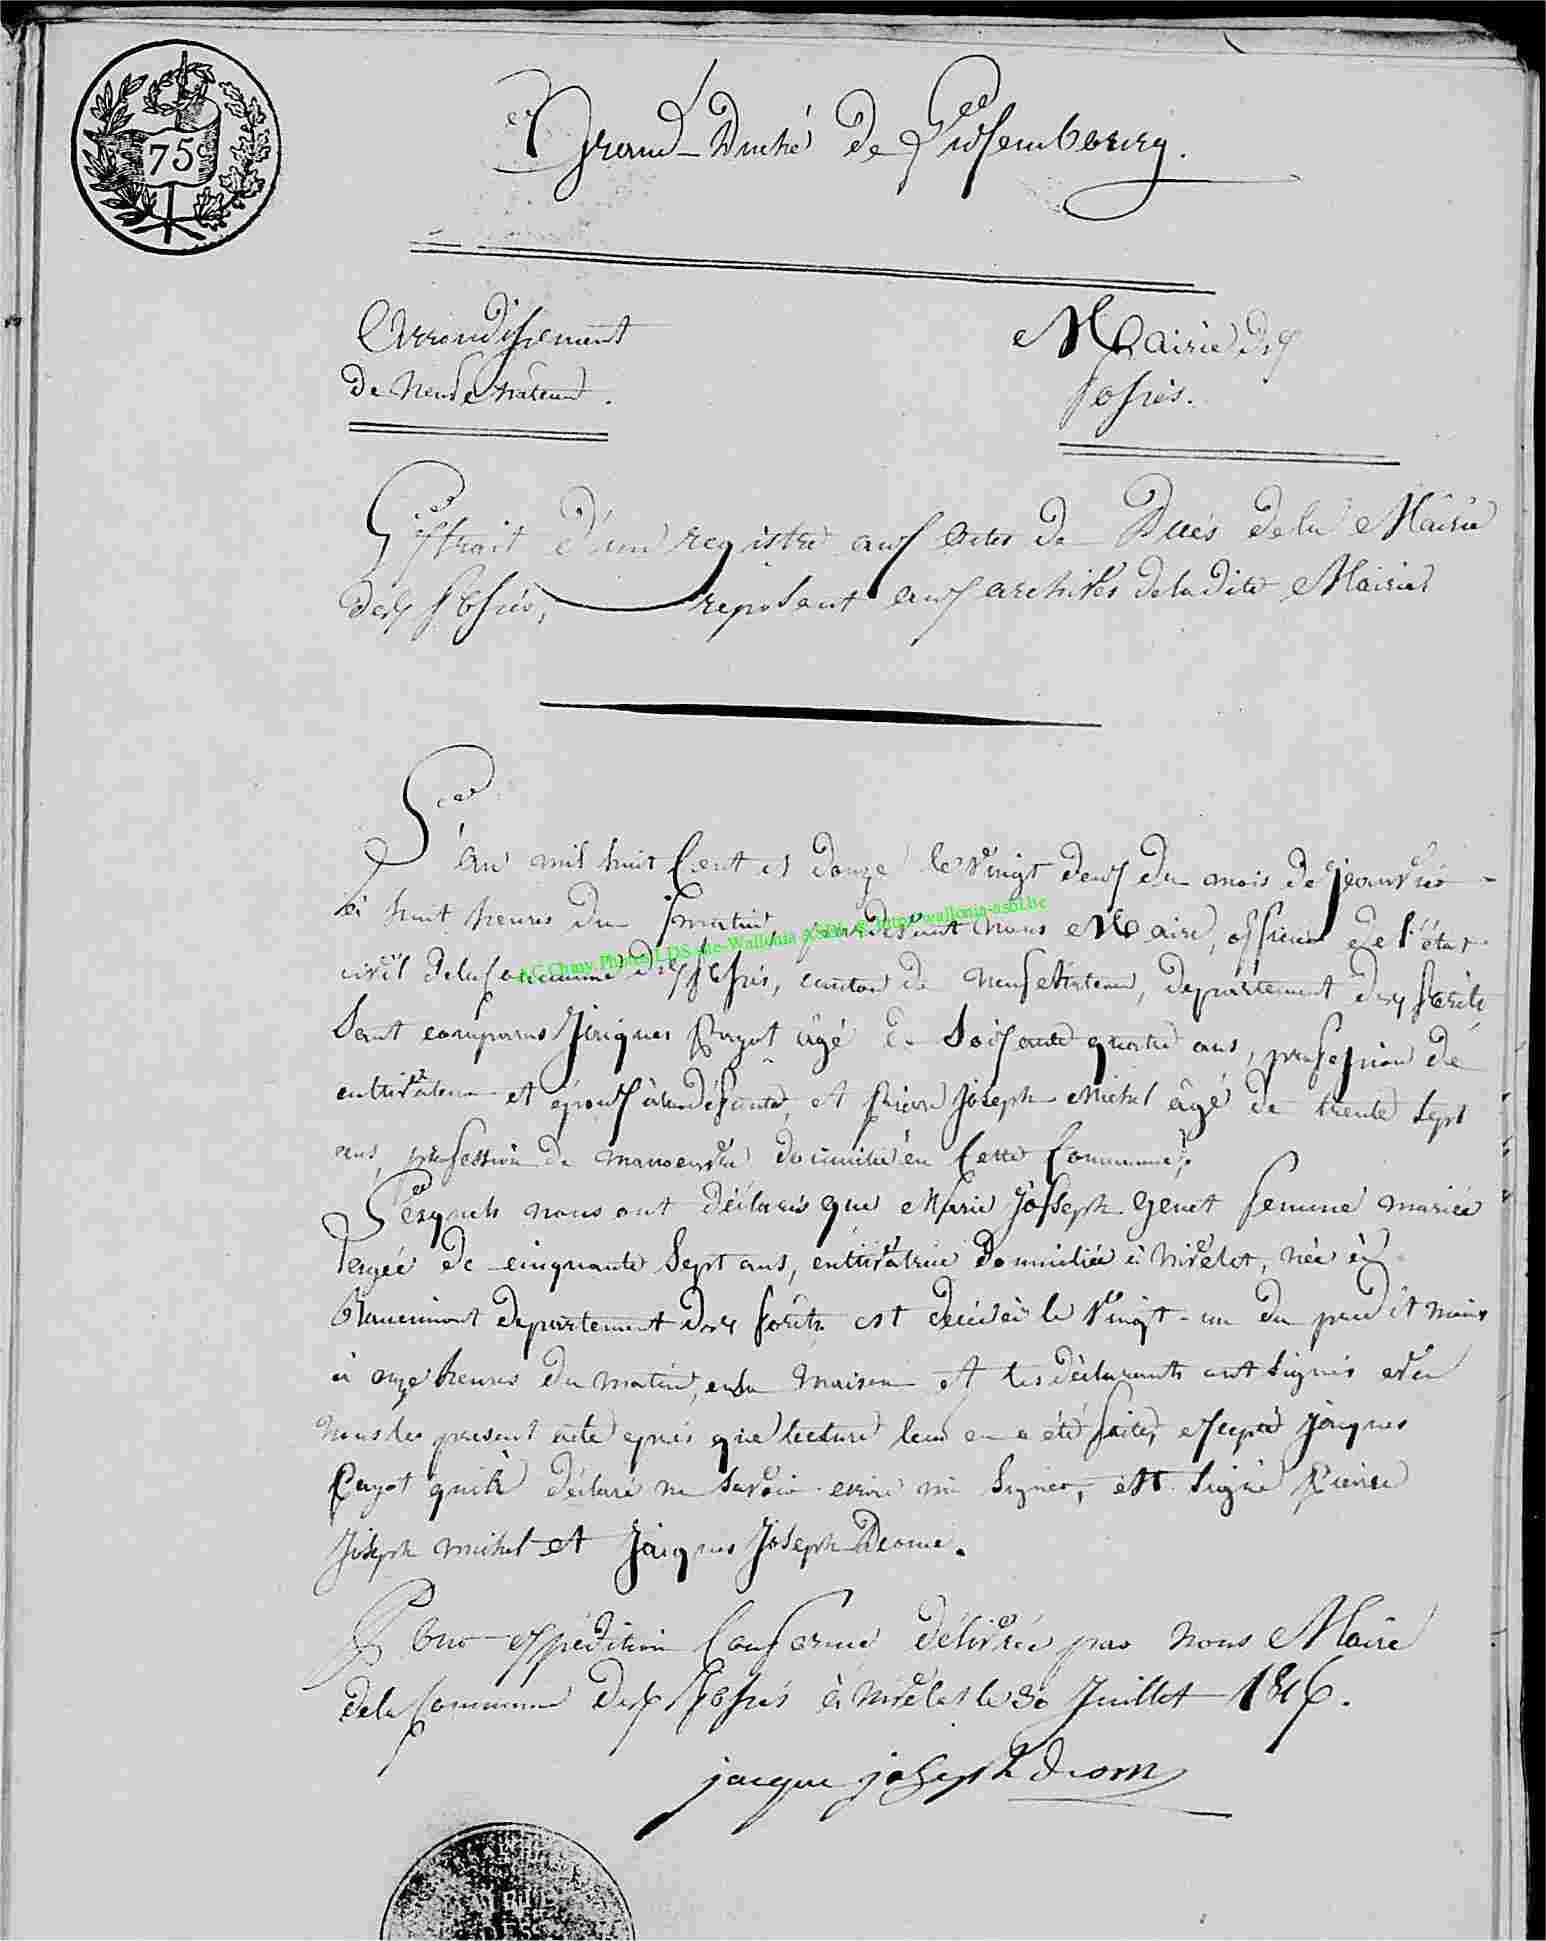 75c
Grand-Duché de Luxembourg.
Arrondissement
de Neufchateau.
Mairie des
fossés.
Extrait d'un registre aux actes de Décés de la Mairie
des fossés, reposant aux archives de ladite Mairie
L'an mil huit cent et douze le vingt deux du mois de janvier
à huit heures du matin, pardevant nous Maire, officier de l'état
AC Chiny. Photos LDS site-Wallonia ASBL © http://wallonia-asbl.be
civil de la commune des fossés, canton de neufchateau, departement des forêts
sont comparus Jacques Payot âgé de soixante quatre ans, profession de
cultivateur et époux à la défunte, et pierre joseph michel âgé de trente sept
ans, profession de manoeuvre domicilié en cette commune;
Lesquels nous ont déclarés que Marie Josseph genet femme mariée
agée de cinquante sept ans, cultivatrice domiciliée à nivelet, née à
departement des forêts est decédée le vingt-un du predit mois
à onze heures du matin, en sa maison et les déclarants ont signés avec
nous les present acte aprés que lecture leur en a été faite, excepté jacques
Payot qui à déclaré ne savoir ecrire ni signer, est signé Pierre
Joseph michel et Jacques Joseph Deome.
Pour expédition conforme délivrée par nous Maire
de la commune des fossés à nivelet le 30 Juillet 1816.
jacque joseph deom